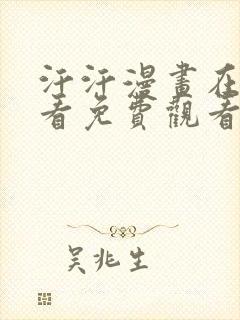 汗汗漫畫在
看免費觀看
吴兆生